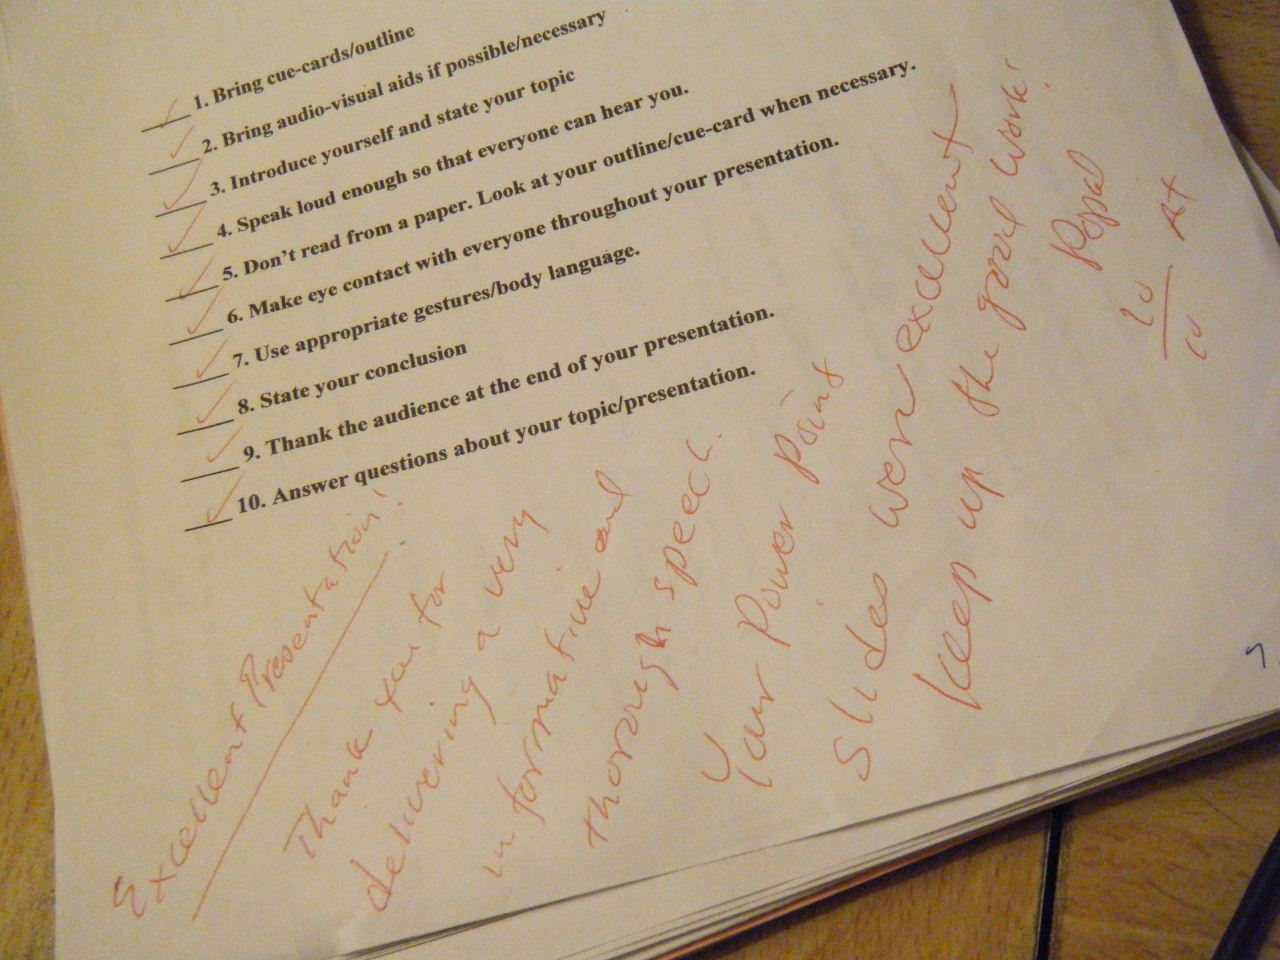 1. Bring cue-cards/outline
2. Bring audio-visual aids if possible/necessary
3. Introduce yourself and state your topic
4. Speak loud enough so that everyone can hear you.
5. Don't read from a paper. Look at your outline/cue-card when necessary.
6. Make eye contact with everyone throughout your presentation.
7. Use appropriate gestures/body language.
8. State your conclusion
9. Thank the audience at the end of your presentation.
10. Answer questions about your topic/presentation.
Excellent Presentation!
Thank you for
delivering a very
informative and
thorough speech.
Your Power Point
slides were excellent
Keep up the good work!
10 A+
10